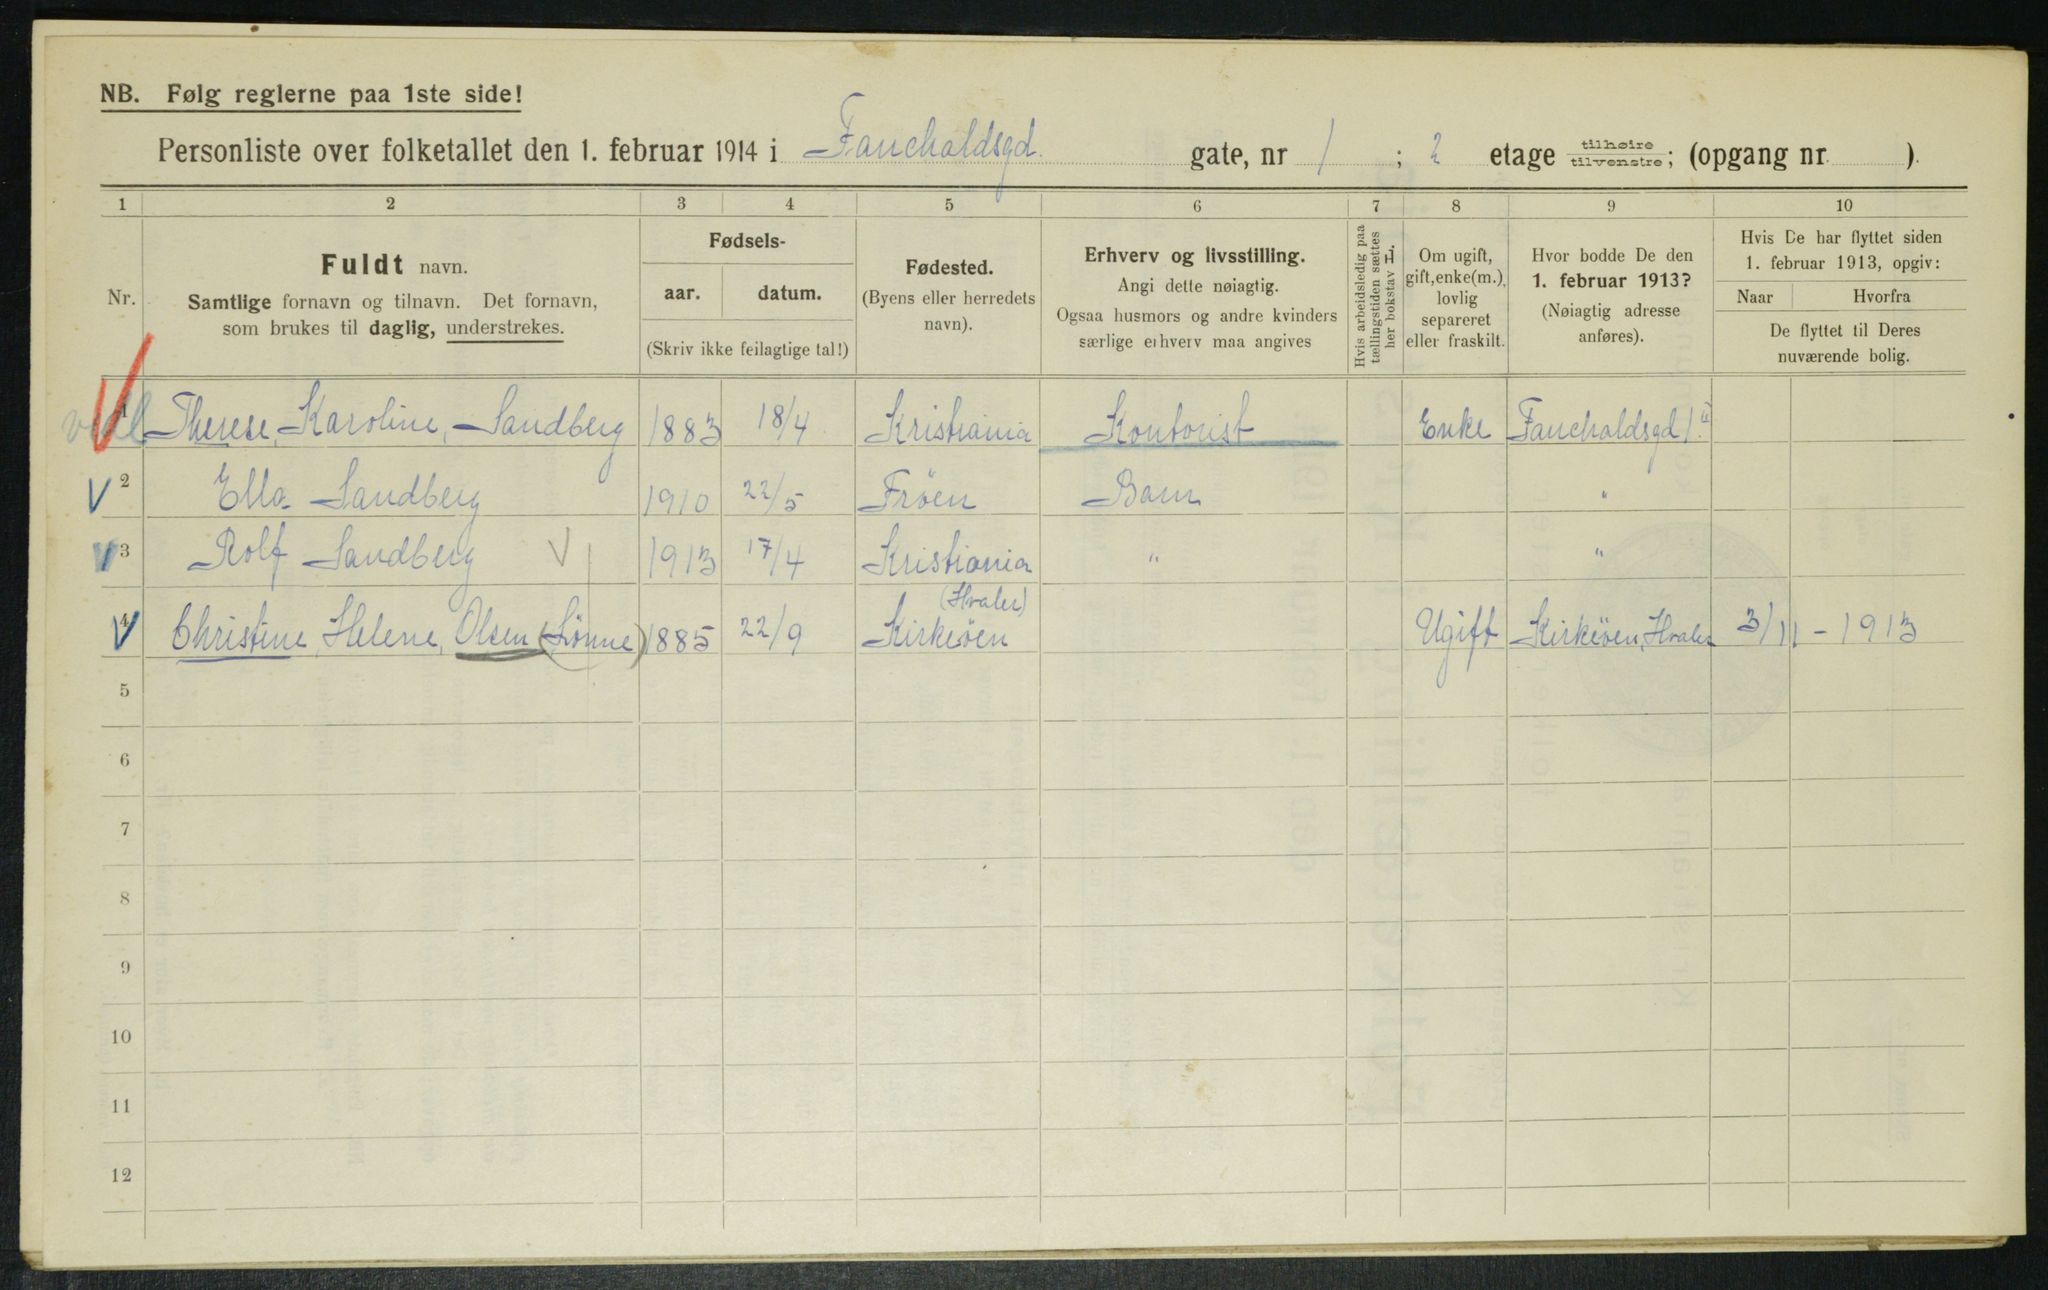 NB. Følg reglerne paa 1ste side!
Personliste over folketallet den 1. februar 1914 i Fauchaldsgd. gate, nr 1 ; 2 etage tilhøire tilvenstre; (opgang nr. ).
1 2 3 4 5 6 7 8 9 10
Nr.
Fuldt navn.
Samtlige fornavn og tilnavn. Det fornavn,
som brukes til daglig, understrekes.
Fødsels-
aar. datum.
(Skriv ikke feilagtige tal!)
Fødested.
(Byens eller herredets
navn).
Erhverv og livsstilling.
Angi dette nøiagtig.
Ogsaa husmors og andre kvinders
særlige erhverv maa angives
Hvis arbeidsledig paa
tællingstiden sættes
her bokstav L.
Om ugift,
gift, enke(m.),
lovlig
separeret
eller fraskilt.
Hvor bodde De den
1. februar 1913?
(Nøiagtig adresse
anføres).
Hvis De har flyttet siden
1. februar 1913, opgiv:
Naar Hvorfra
De flyttet til Deres
nuværende bolig.
1 Therese, Karoline, Sandberg 1883 18/4 Kristiania Kontorist Enke Fauchaldsgd 1
2 Ella Sandberg 1910 22/5 Frøen Barn "
3 Rolf Sandberg 1913 17/4 Kristiania " "
(Hvaler)
4 Christine, Helene, Olsen (Lønne) 1885 22/9 Kirkeöen Ugift Kirkeöen, Hvaler 3/11 - 1913
5
6
7
8
9
10
11
12